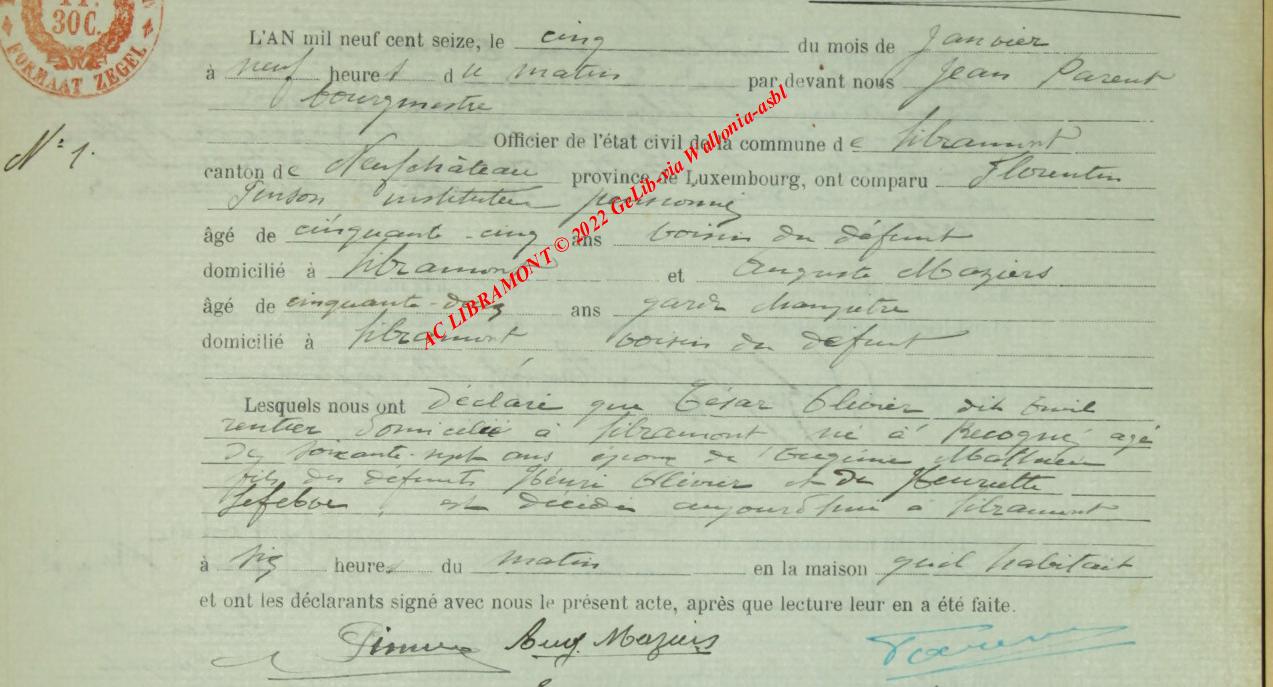 30 C.
FORMAAT ZEGEL
L'AN mil neuf cent seize, le cinq du mois de Janvier
à neuf heures du matin par devant nous Jean Parent
bourgmestre
N° 1.
Officier de l'état civil de la commune de Libramont
canton de Neufchâteau province de Luxembourg, ont comparu Florentin
instituteur pensionné
âgé de cinquante-cinq ans voisin du défunt
domicilié à Libramont et Auguste Maziers
âgé de cinquante-deux ans garde champêtre
domicilié à Libramont voisin du défunt
Lesquels nous ont déclaré que César Olivier dit Emil
rentier domicilié à Libramont né à Recogne agé
de soixante-sept ans époux de Eugénie Mathieu
fils des défunts Henri Olivier et de Henriette
Lefebvre, est décédé aujourd'hui à Libramont
à six heures du matin en la maison qu'il habitait
et ont les déclarants signé avec nous le présent acte, après que lecture leur en a été faite.
Aug. Maziers
AC LIBRAMONT © 2022 GeLib-via Wallonia-asbl